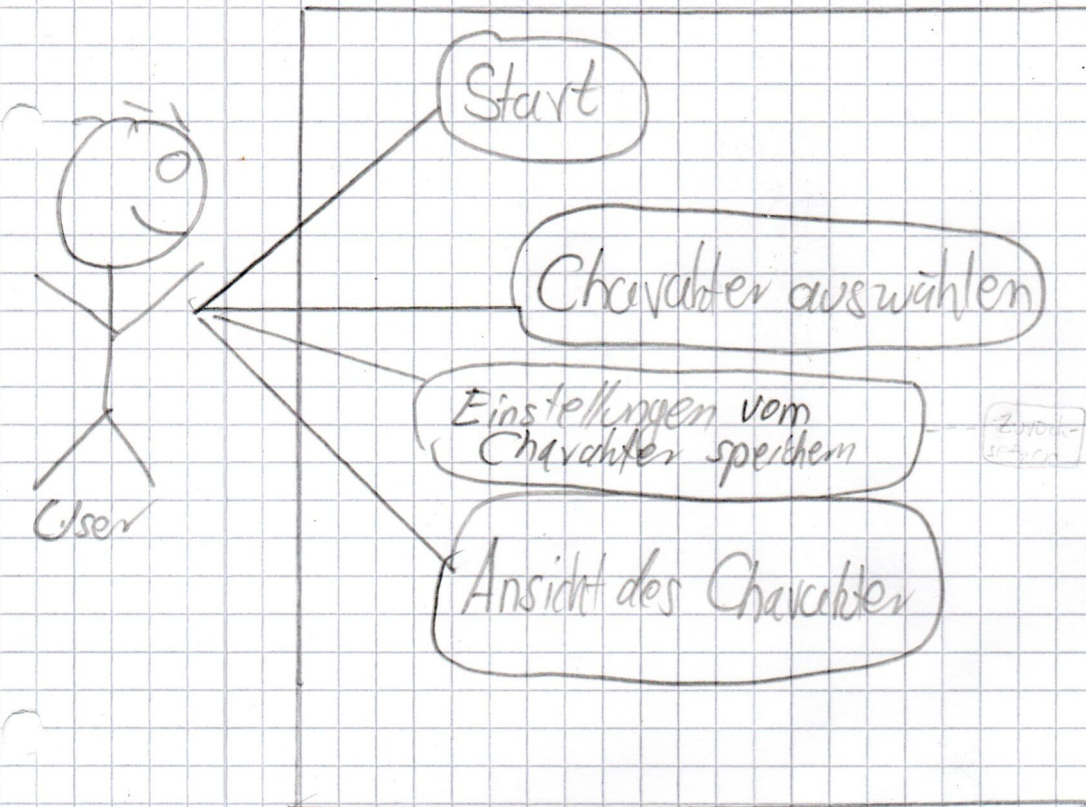 Start
Charakter auswählen
Einstellungen vom
Charakter speichern
Zurück-
setzen
Ansicht des Charakter
User